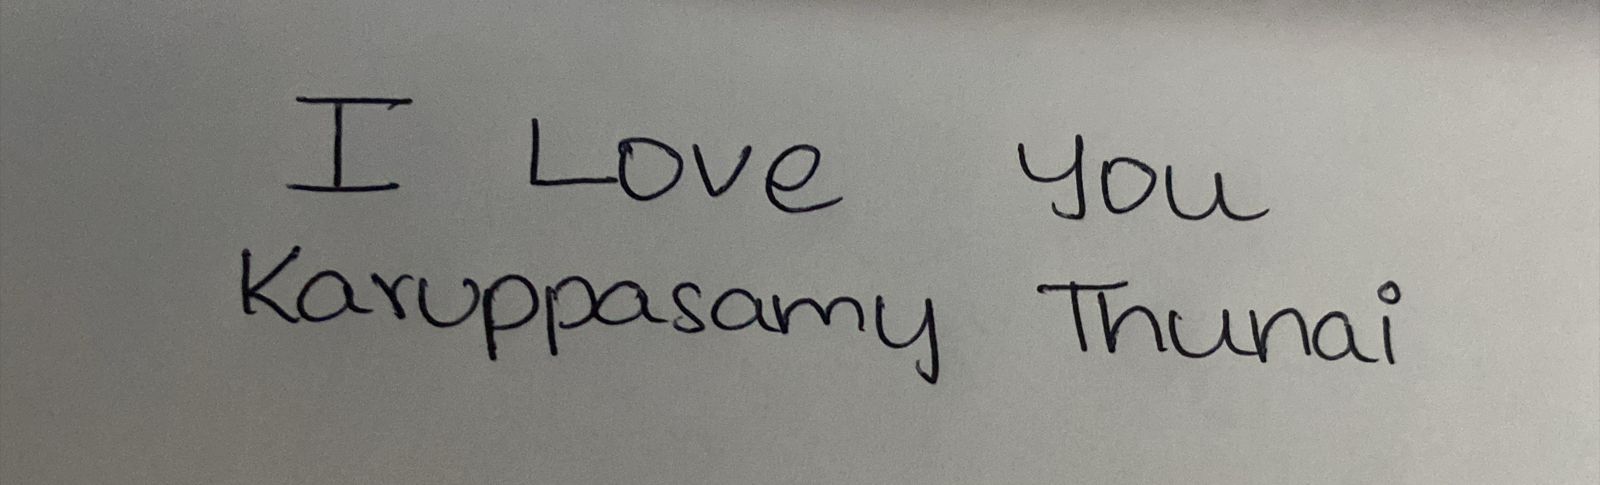 I Love you
Karuppasamy Thunai